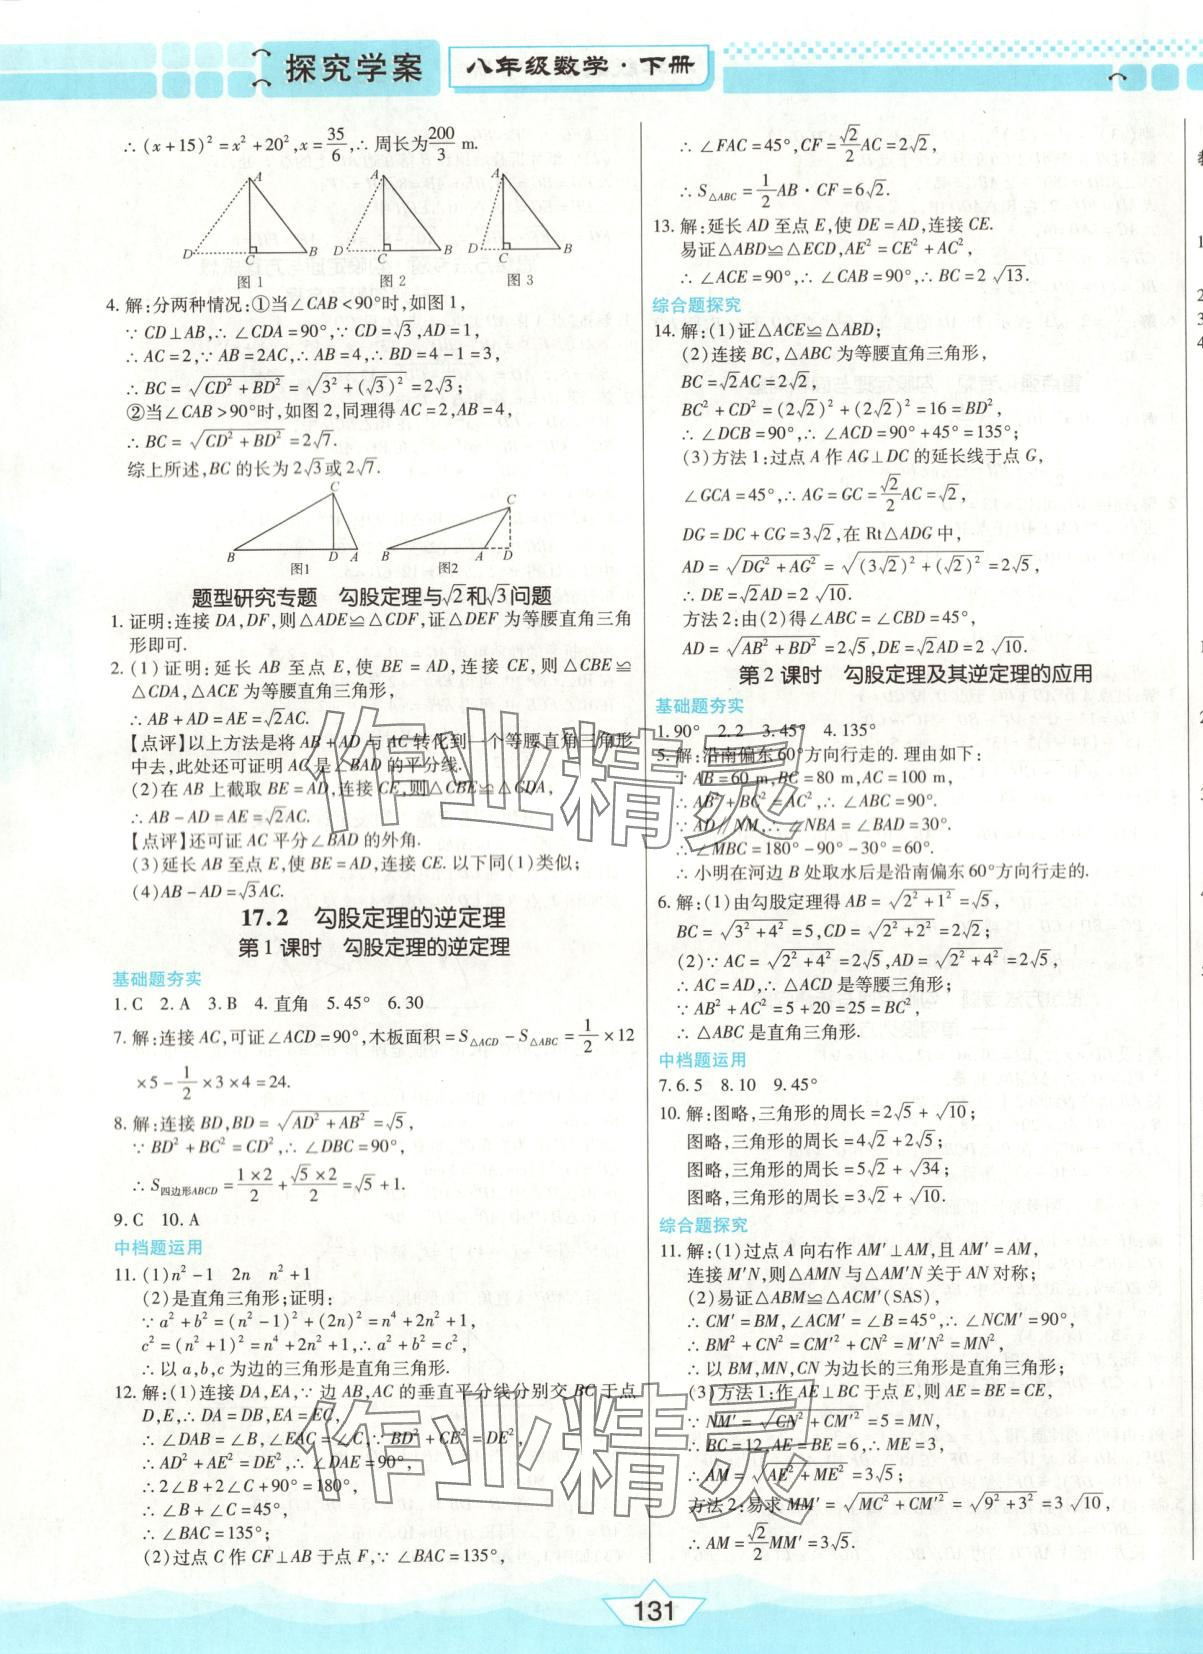 探究学案
八年级数学·下册
∴ (x+15)²=x²+20²,x=35/6,∴ 周长为200/3 m.
A A A
D C B D C B D C B
图 1 图 2 图 3
4. 解:分两种情况:①当∠CAB<90°时,如图 1,
∵ CD⊥AB,∴ ∠CDA=90°,∵ CD=√3,AD=1,
∴ AC=2,∵ AB=2AC,∴ AB=4,∴ BD=4-1=3,
∴ BC=√(CD²+BD²)=√(3²+(√3)²)=2√3;
②当∠CAB>90°时,如图 2,同理得 AC=2,AB=4,
∴ BC=√(CD²+BD²)=2√7.
综上所述,BC 的长为 2√3或 2√7.
C C
B D A B A D
图1 图2
题型研究专题 勾股定理与√2和√3问题
1. 证明:连接 DA,DF,则△ADE≌△CDF,证△DEF 为等腰直角三角
形即可.
2. (1) 证明:延长 AB 至点 E,使 BE=AD,连接 CE,则△CBE≌
△CDA,△ACE 为等腰直角三角形,
∴ AB+AD=AE=√2AC.
【点评】以上方法是将 AB+AD 与 AC 转化到一个等腰直角三角形
中去,此处还可证明 AC 是∠BAD 的平分线.
(2)在 AB 上截取 BE=AD,连接 CE,则△CBE≌△CDA,
∴ AB-AD=AE=√2AC.
【点评】还可证 AC 平分∠BAD 的外角.
(3)延长 AB 至点 E,使 BE=AD,连接 CE. 以下同(1)类似;
(4)AB-AD=√3AC.
17.2 勾股定理的逆定理
第 1 课时 勾股定理的逆定理
基础题夯实
1. C 2. A 3. B 4. 直角 5. 45° 6. 30
7. 解:连接 AC,可证∠ACD=90°,木板面积=S△ACD-S△ABC=1/2×12
×5-1/2×3×4=24.
8. 解:连接 BD,BD=√(AD²+AB²)=√5,
∵ BD²+BC²=CD²,∴ ∠DBC=90°,
∴ S四边形ABCD=(1×2)/2+(√5×2)/2=√5+1.
9. C 10. A
中档题运用
11. (1)n²-1 2n n²+1
(2)是直角三角形;证明:
∵ a²+b²=(n²-1)²+(2n)²=n⁴+2n²+1,
c²=(n²+1)²=n⁴+2n²+1,∴ a²+b²=c²,
∴ 以 a,b,c 为边的三角形是直角三角形.
12. 解:(1)连接 DA,EA,∵ 边 AB,AC 的垂直平分线分别交 BC 于点
D,E,∴ DA=DB,EA=EC,
∴ ∠DAB=∠B,∠EAC=∠C,∵ BD²+CE²=DE²,
∴ AD²+AE²=DE²,∴ ∠DAE=90°,
∴ 2∠B+2∠C+90°=180°,
∴ ∠B+∠C=45°,
∴ ∠BAC=135°;
(2)过点 C 作 CF⊥AB 于点 F,∵ ∠BAC=135°,
∴ ∠FAC=45°,CF=√2/2AC=2√2,
∴ S△ABC=1/2AB·CF=6√2.
13. 解:延长 AD 至点 E,使 DE=AD,连接 CE.
易证△ABD≌△ECD,AE²=CE²+AC²,
∴ ∠ACE=90°,∴ ∠CAB=90°,∴ BC=2√13.
综合题探究
14. 解:(1)证△ACE≌△ABD;
(2)连接 BC,△ABC 为等腰直角三角形,
BC=√2AC=2√2,
BC²+CD²=(2√2)²+(2√2)²=16=BD²,
∴ ∠DCB=90°,∴ ∠ACD=90°+45°=135°;
(3)方法 1:过点 A 作 AG⊥DC 的延长线于点 G,
∠GCA=45°,∴ AG=GC=√2/2AC=√2,
DG=DC+CG=3√2,在 Rt△ADG 中,
AD=√(DG²+AG²)=√((3√2)²+(√2)²)=2√5,
∴ DE=√2AD=2√10.
方法 2:由(2)得∠ABC=∠CBD=45°,
AD=√(AB²+BD²)=2√5,DE=√2AD=2√10.
第 2 课时 勾股定理及其逆定理的应用
基础题夯实
1. 90° 2. 2 3. 45° 4. 135°
5. 解:沿南偏东 60°方向行走的. 理由如下:
∵ AB=60 m,BC=80 m,AC=100 m,
∴ AB²+BC²=AC²,∴ ∠ABC=90°.
∵ AD∥NM,∴ ∠NBA=∠BAD=30°.
∴ ∠MBC=180°-90°-30°=60°.
∴ 小明在河边 B 处取水后是沿南偏东60°方向行走的.
6. 解:(1)由勾股定理得 AB=√(2²+1²)=√5,
BC=√(3²+4²)=5,CD=√(2²+2²)=2√2;
(2)∵ AC=√(2²+4²)=2√5,AD=√(2²+4²)=2√5,
∴ AC=AD,∴ △ACD 是等腰三角形;
∵ AB²+AC²=5+20=25=BC²,
∴ △ABC 是直角三角形.
中档题运用
7. 6.5 8. 10 9. 45°
10. 解:图略,三角形的周长=2√5+√10;
图略,三角形的周长=4√2+2√5;
图略,三角形的周长=5√2+√34;
图略,三角形的周长=3√2+√10.
综合题探究
11. 解:(1)过点 A 向右作 AM′⊥AM,且 AM′=AM,
连接 M′N,则△AMN 与△AM′N 关于 AN 对称;
(2)易证△ABM≌△ACM′(SAS),
∴ CM′=BM,∠ACM′=∠B=45°,∴ ∠NCM′=90°,
∴ BM²+CN²=CM′²+CN²=M′N²=MN²,
∴ 以 BM,MN,CN 为边长的三角形是直角三角形;
(3)方法 1:作 AE⊥BC 于点 E,则 AE=BE=CE,
∵ NM′=√(CN²+CM′²)=5=MN,
∴ BC=12,AE=BE=6,∴ ME=3,
∴ AM=√(AE²+ME²)=3√5;
方法 2:易求 MM′=√(MC²+CM′²)=√(9²+3²)=3√10,
∴ AM=√2/2MM′=3√5.
作业精灵
作业精灵
131